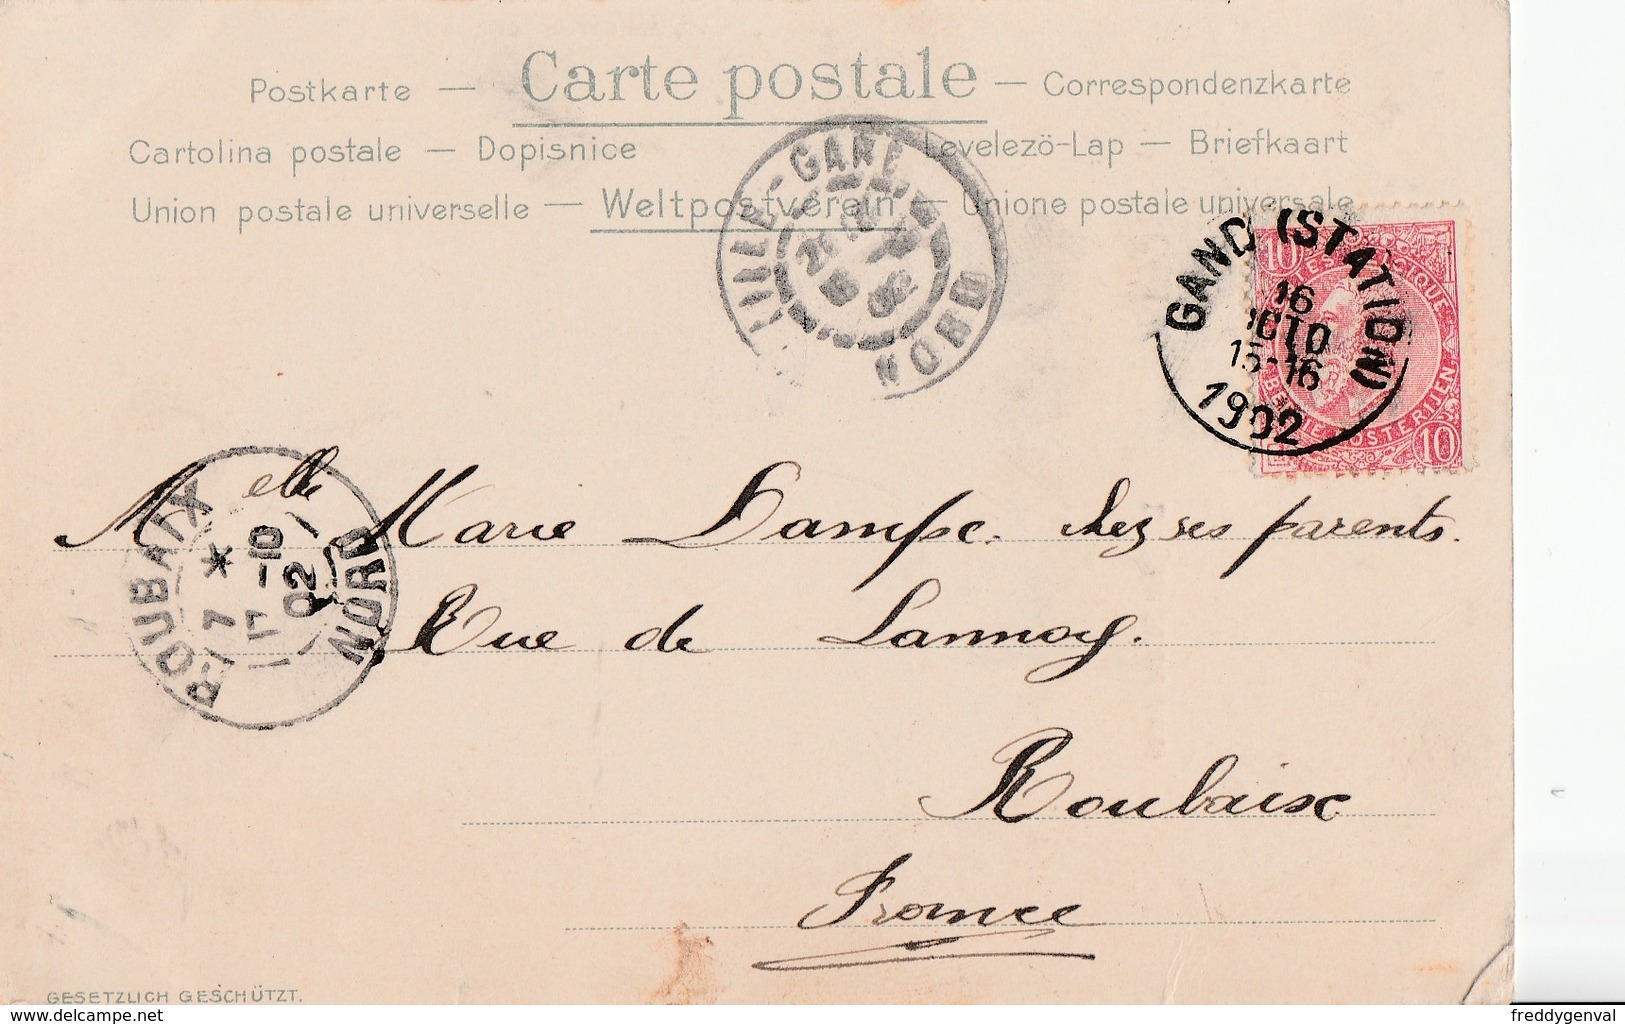 Postkarte — Carte postale — Correspondenzkarte
Cartolina postale — Dopisnice Levelezö-Lap — Briefkaart
Union postale universelle — Weltpostverein — Unione postale universale
LILLE-GARE
NORD
GAND (STATION)
16
OCTO
15-16
1902
10
10
ROUBAIX
7 *
17 -10
02
NORD
Melle Marie Dampe. chez ses parents.
Rue de Lannoy.
Roubaix
France
GESETZLICH GESCHÜTZT.
delcampe.net
freddygenval